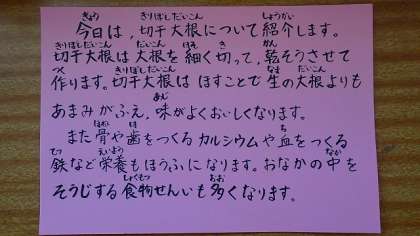 今日は，切干大根について紹介します。
切干大根は大根を細く切って，乾そうさせて
作ります。切干大根はほすことで生の大根よりも
あまみがふえ，味がよくおいしくなります。
また骨や歯をつくるカルシウムや血をつくる
鉄など栄養もほうふになります。おなかの中を
そうじする食物せんいも多くなります。